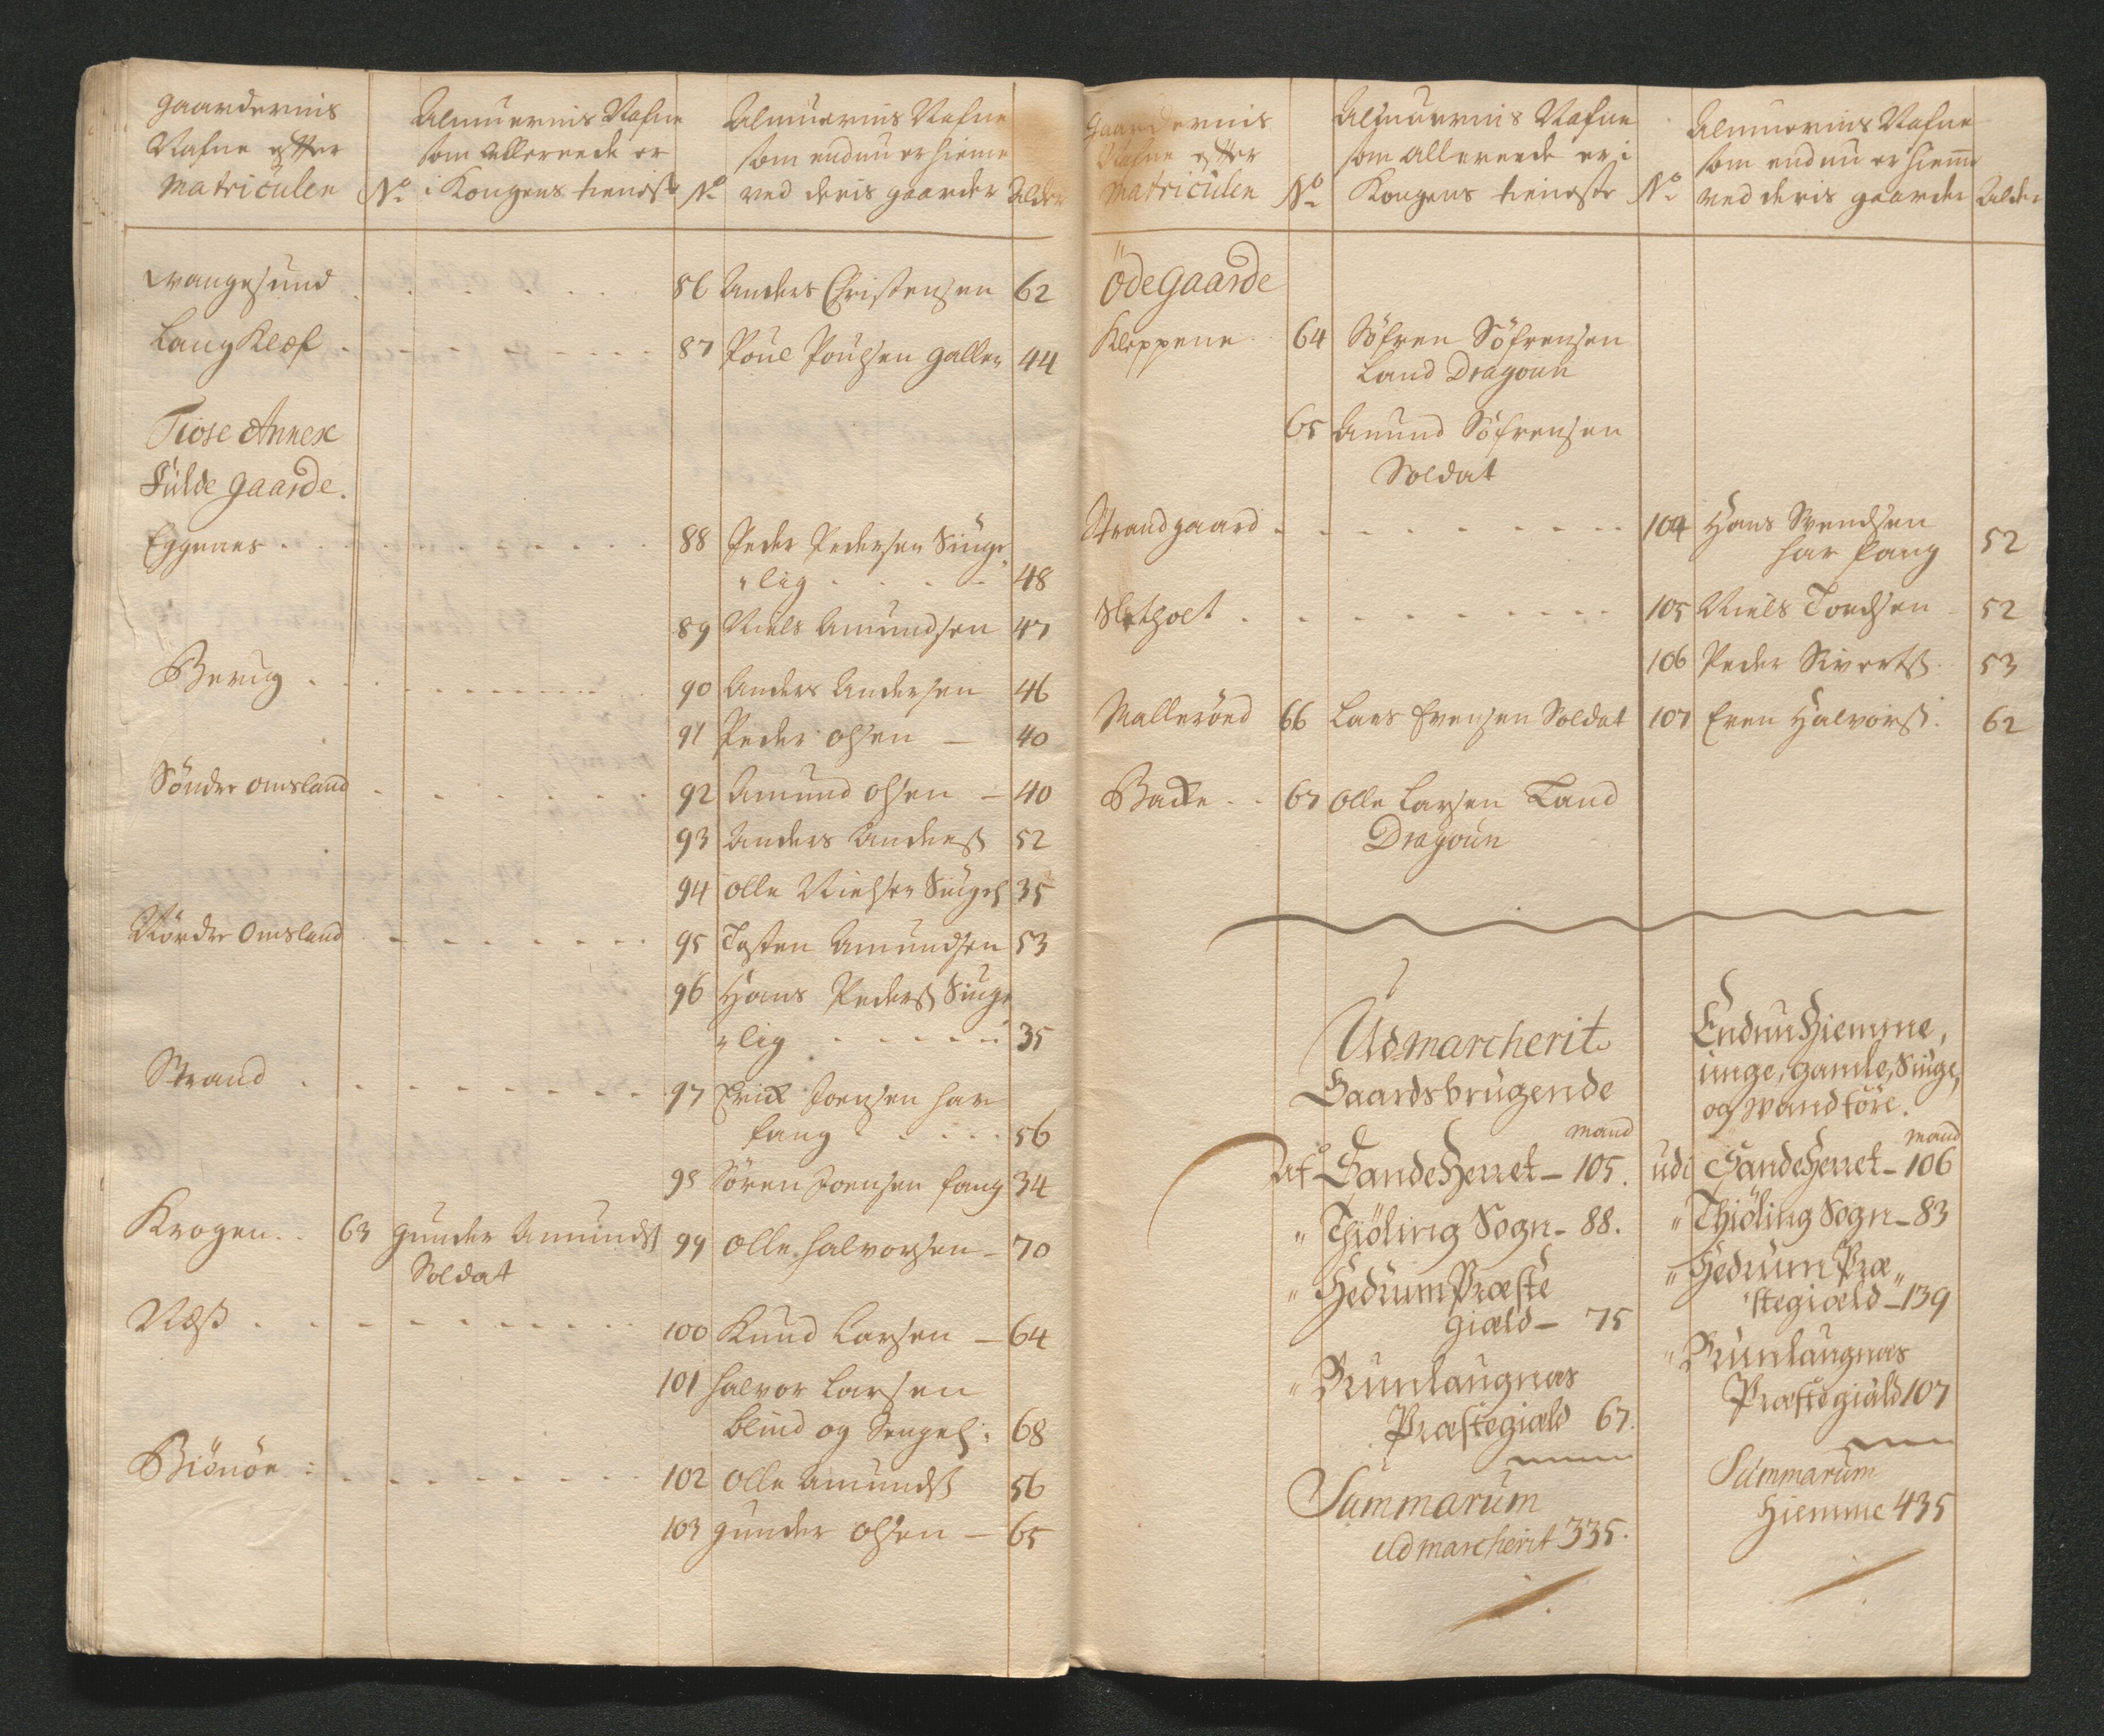 Gaardernis
Nafne efter
Matriculen
No
Almuernis Nafne
som allereede er
i Kongens tieneste
No
Almuernis Nafne
som endnu er hieme
ved deris gaarder
Alder
Wangesund . . . . . . 86 Anders Christensen 62
Langkleof . - - - - - - 87 Poul Poulsen galler 44
Tiose Annex
Fulde gaarde.
Eggenes . . . . . . . 88 Peder Pedersen Siuge
lig . . . - 48
89 Niels Amundsen 47
Berug . . . . . . . 90 Anders Andersen 46
91 Peder Olsen — 40
Söndre Omsland . - - - - - 92 Amund Olsen — 40
93 Anders Anderss 52
94 Olle Nielsen Siugel 35
Nordre Omsland . - - - - - 95 Tosten Amundsen 53
96 Hans Pederss Siuge
lig . - - - - 35
Strand . . - - - - - - 97 Erick Joensen har
fang . . . . 56
98 Sören Joensen fang 34
Krogen . . 63 Gunder Amunds 99 Olle Halvorsen - 70
Soldat
Næss . - - - - - - - 100 Knud Larsen — 64
101 Halvor Larsen
blind og Sengel: 68
Biönöe : - - - - - - - 102 Olle Amundss 56
103 Gunder Olsen — 65
Gaardernis
Nafne efter
Matriculen
No
Almuernis Nafne
som allereede er i
Kongens tieneste
No
Almuernis Nafne
som endnu er hieme
ved deris gaarder
Alder
Ödegaarde
Kleppene . 64 Söfren Söfrensen
Land Dragoun
65 Amund Söfrensen
Soldat
Strandgaard . - - - - - - - 104 Hans Svendsen
har fang 52
Sletholt . - - - - - - - 105 Niels Tordsen - 52
106 Peder Sivertss . 53
Malleröed 66 Lars Evensen Soldat 107 Even Halvorss . 62
Backe . . 67 Olle Larsen Land
Dragoun
Udmarcherit
Gaardsbrugende
mand
Af Sandeherret — 105.
" Thiöling Sogn - 88.
" Hedrum Præste
giæld — 75
" Brunlaugnæs
Præstegiæld 67.
Summarum
Udmarcherit 335.
Endnu Hiemme,
unge, gamle, Siuge,
og Vandföre.
mand
udi Sandeherret - 106
" Thiöling Sogn - 83
" Hedrum Præ„
stegiæld - 139
" Brunlaugnæs
Præstegiæld 107
Summarum
Hiemme 435